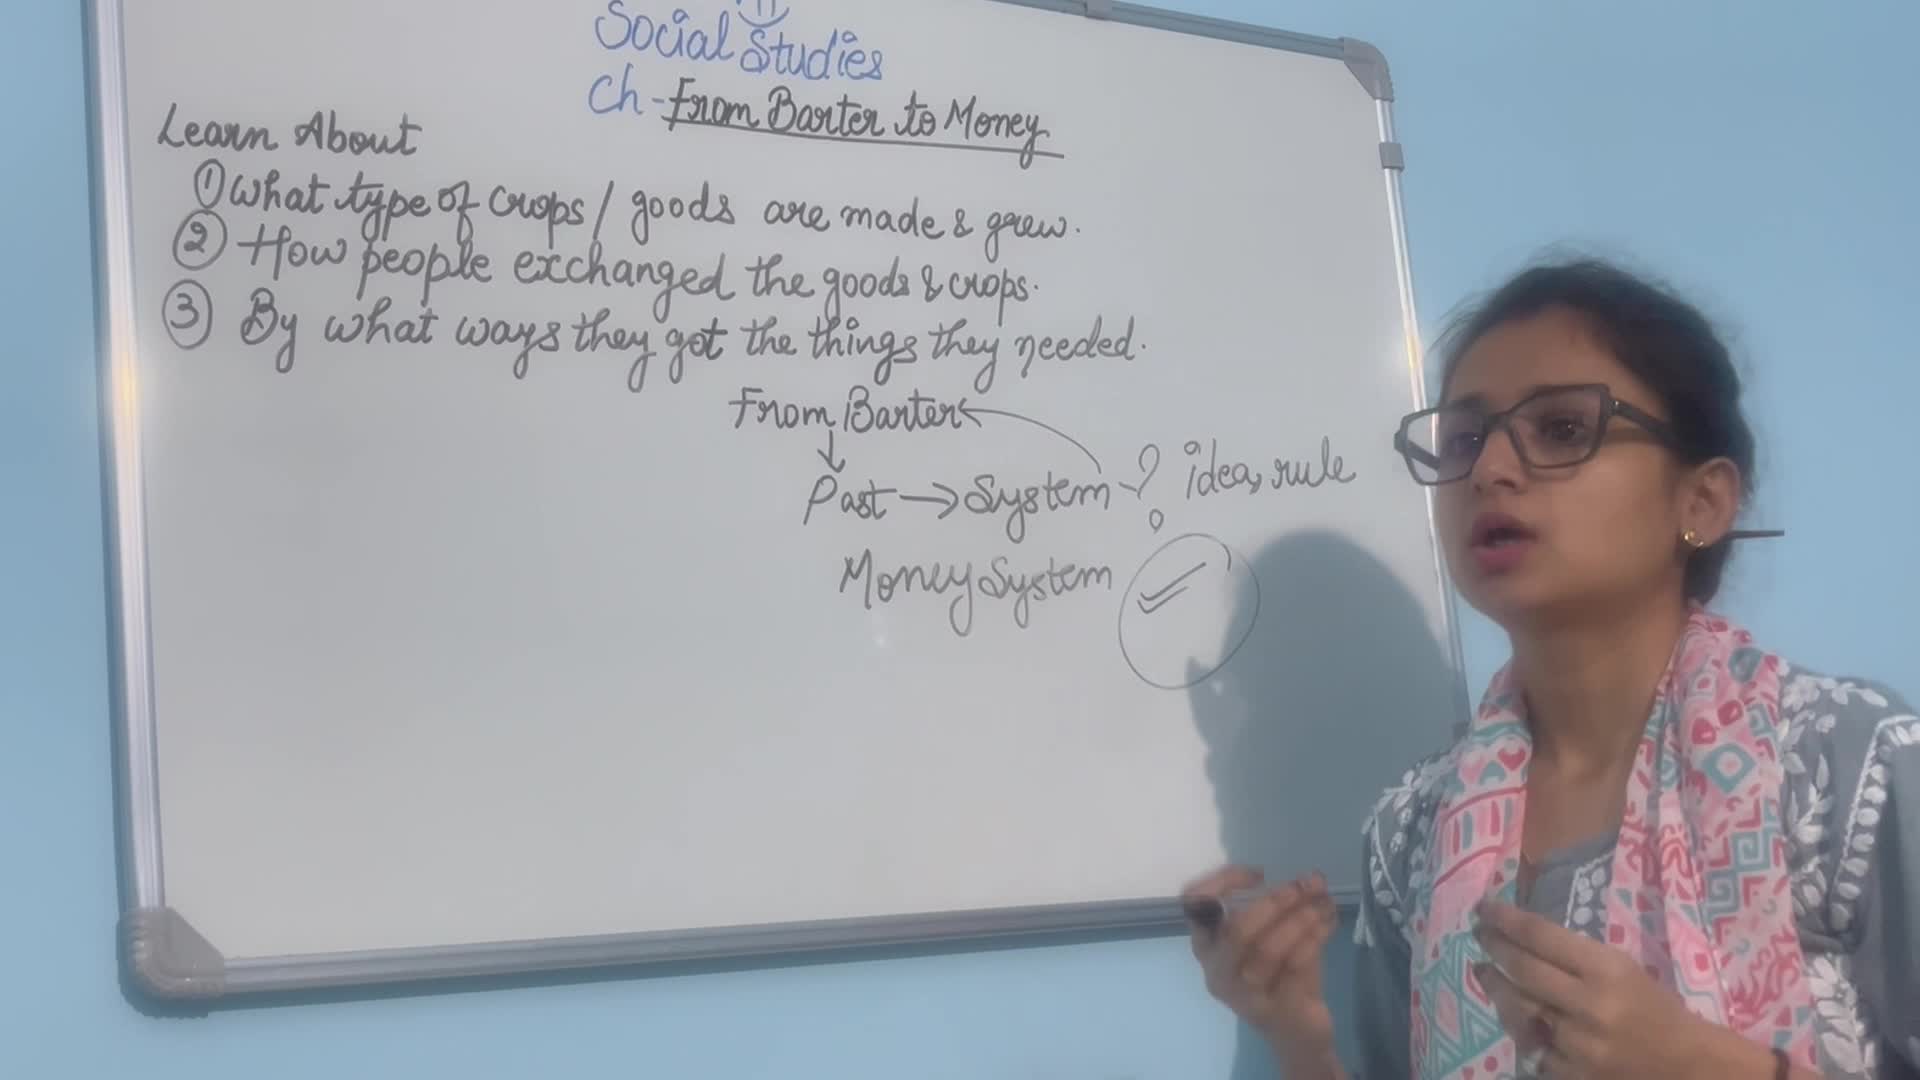 Social Studies
Ch - From Barter to Money
Learn About
① What type of crops / goods are made & grew.
② How people exchanged the goods & crops.
③ By what ways they got the things they needed.
From Barter
Past → System - ? idea, rule
Money System